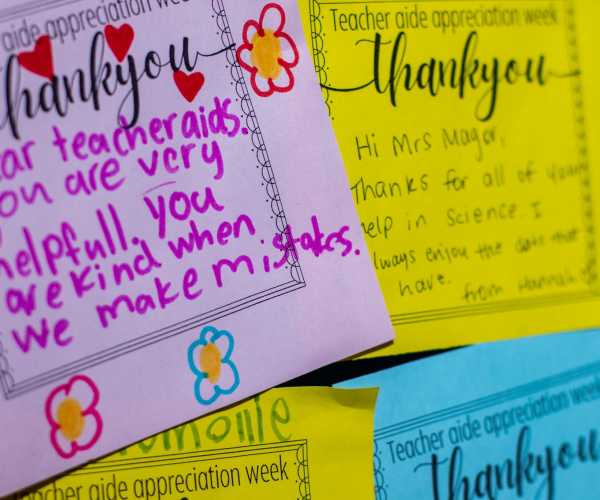 aide appreciation week
thankyou
ear teacher aids.
you are very
helpfull. you
are kind when
we make mistakes.
Teacher aide appreciation week
thankyou
Hi Mrs Mayor,
Thanks for all of your
help in Science. I
always enjoy the that
have.
from Hannah
Teacher aide appreciation week
Teacher aide appreciation week
thankyou